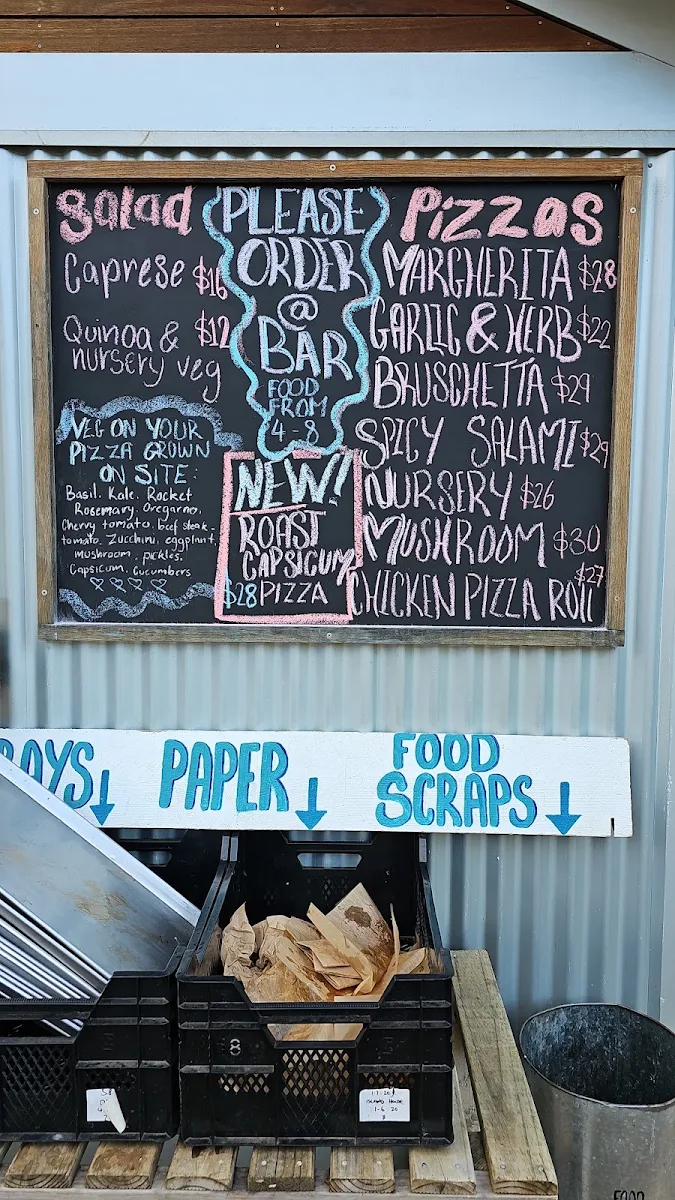 Salad
Caprese $16
Quinoa & $12
nursery veg
VEG ON YOUR
PIZZA GROWN
ON SITE:
Basil. Kale. Rocket
Rosemary. Oregano.
Cherry tomato. beef steak-
tomato. Zucchini. eggplant.
mushroom. pickles.
Capsicum. Cucumbers
PLEASE
ORDER
@
BAR
FOOD
FROM
4-8
NEW!
ROAST
CAPSICUM
$28 PIZZA
Pizzas
MARGHERITA $28
GARLIC & HERB $22
BRUSCHETTA $29
SPICY SALAMI $29
NURSERY $26
MUSHROOM $30
CHICKEN PIZZA ROLL $27
PAPER
FOOD
SCRAPS
8
FOOD